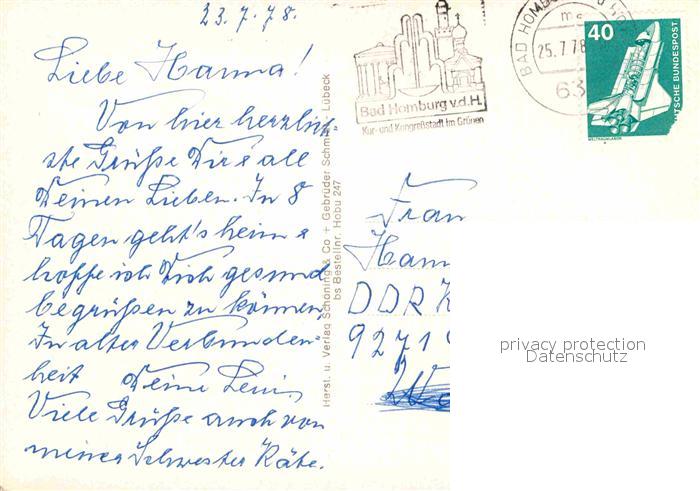 23.7.78.
Liebe Hanna!
Von hier herzlich-
ste Grüße Dir & all
Deinen Lieben. In 8
Tagen geht's heim &
hoffe ich Dich gesund
begrüßen zu können,
In alter Verbunden-
heit Deine Leni,
Viele Grüße auch von
meiner Schwester Käte.
Herst. u. Verlag Schöning & Co + Gebrüder Schmidt, Lübeck
bs Bestellnr. Hobu 247
Bad Homburg v.d.H.
Kur- und Kongreßstadt im Grünen
BAD HOMBURG
25.7.78
63
40
DEUTSCHE BUNDESPOST
WELTRAUMLABOR
Frau
Hann
DDR
9271
privacy protection
Datenschutz